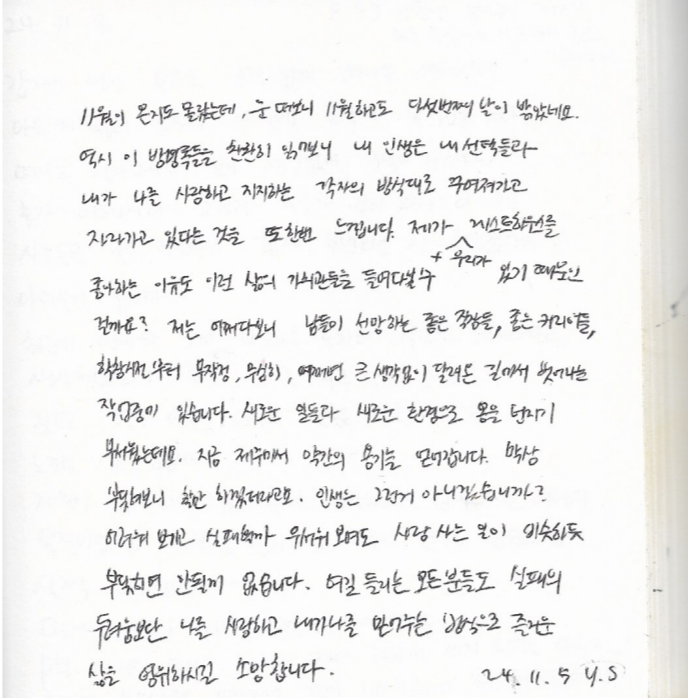 11월이 온지도 몰랐는데, 눈 떠보니 11월하고도 다섯번째 날이 밝았네요.
역시 이 방명록들을 찬찬히 읽어보니 내 인생은 내 선택들과
내가 나를 사랑하고 지지하는 각자의 방식대로 꾸며져가고
자라가고 있다는 것을 또한번 느낍니다. 제가 + 우리가 게스트하우스를
좋아하는 이유도 이런 삶의 가치관들을 들여다볼 수 있기 때문인
걸까요? 저는 어쩌다보니 남들이 선망하는 좋은 직장들, 좋은 커리어들,
학창시절부터 무작정, 무심히, 어쩌면 큰 생각없이 달려온 길에서 벗어나는
작업중에 있습니다. 새로운 일들과 새로운 환경으로 몸을 던지기
무서웠는데요. 지금 제주에서 약간의 용기를 얻어갑니다. 막상
부딪혀보니 할만 하겠더라고요. 인생은 그런거 아니겠습니까?
어려워 보이고 실패할까 무서워 보여도 사람 사는 일이 비슷하듯
부딪히면 안될게 없습니다. 여길 들리는 모든분들도 실패의
두려움보단 나를 사랑하고 내가 나를 믿어주는 방식으로 즐거운
삶을 영위하시길 소망합니다. 24. 11. 5 Y.S